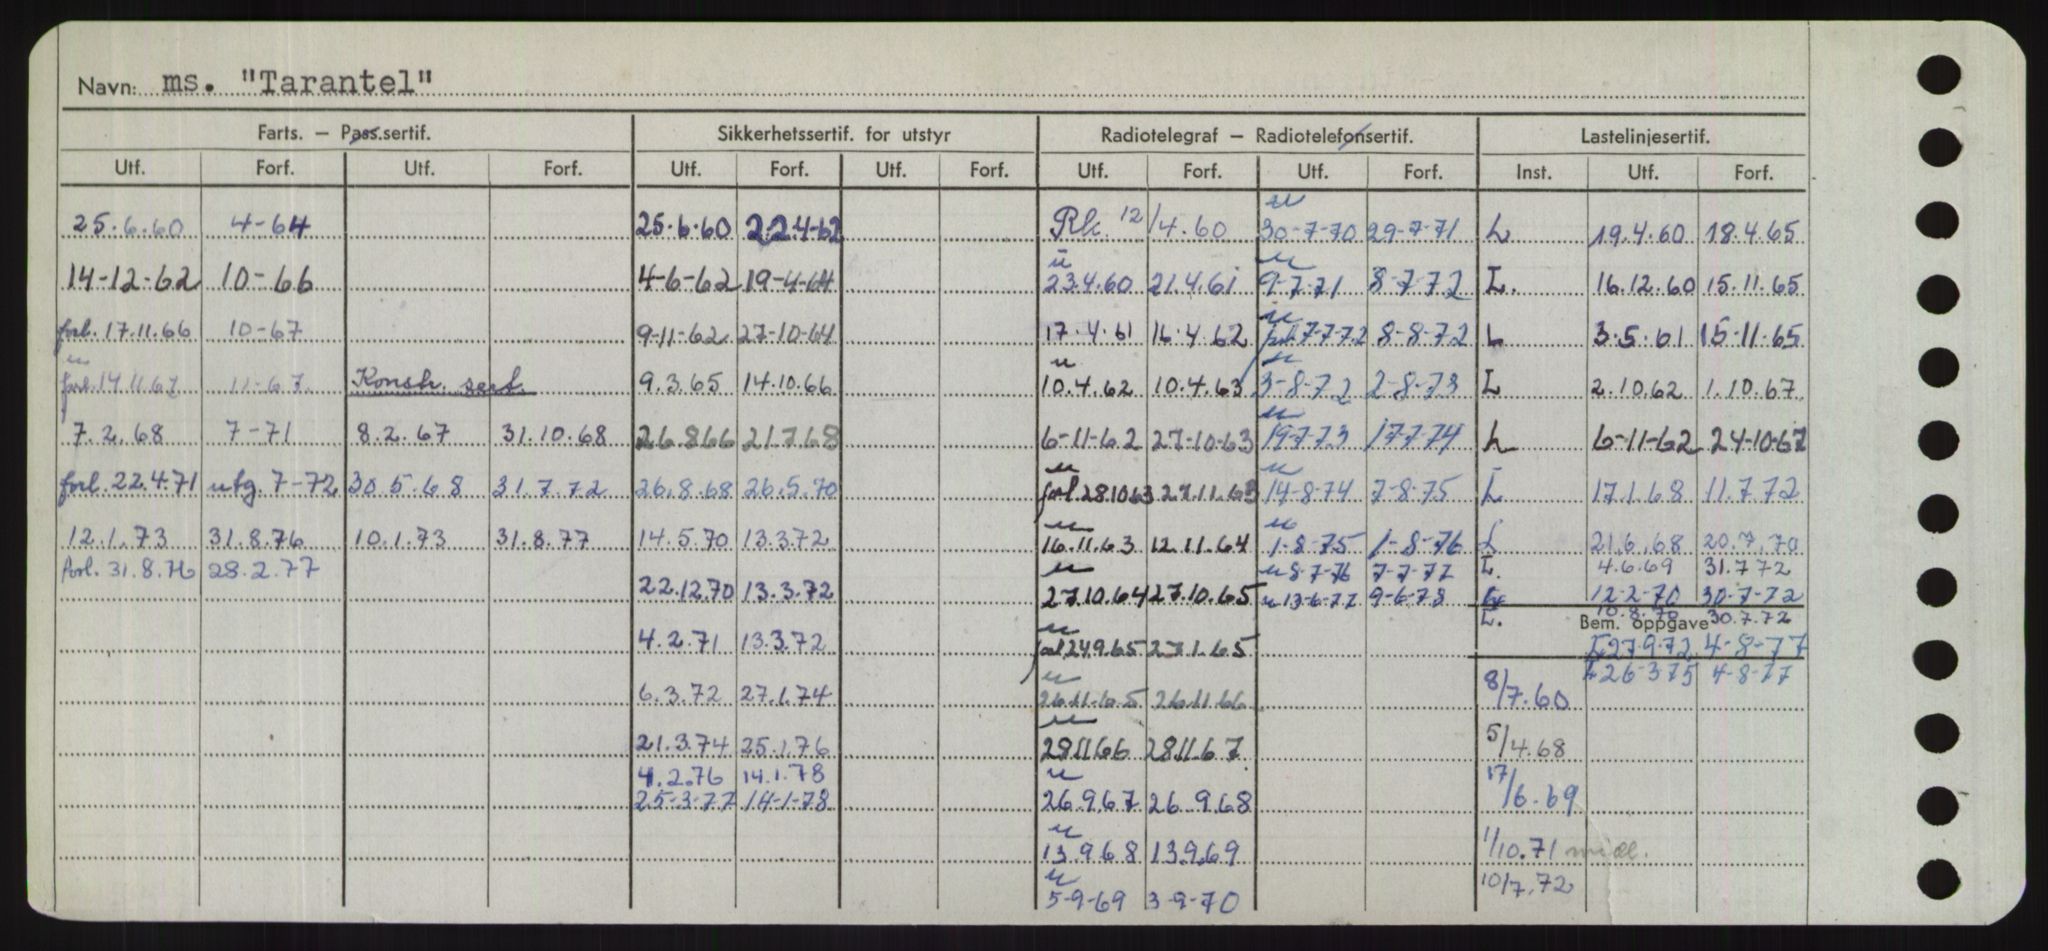 Navn: ms. "Tarantel"
Farts. – Pass.sertif. Sikkerhetssertif. for utstyr Radiotelegraf – Radiotelefonsertif. Lastelinjesertif.
Utf. Forf. Utf. Forf. Utf. Forf. Utf. Forf. Utf. Forf. Utf. Forf. Inst. Utf. Forf.
25.6.60 4-64 25.6.60 22.4-62 Rk. 12/4.60 u 30-7-70 29-7-71 L 19.4.60 18.4.65
14-12-62 10-66 4-6-62 19-4-64 u 23.4.60 21.4.61 u 9-7-71 8-7-72 L. 16.12.60 15.11.65
forl. 17.11.66 10-67 9-11-62 27-10-64 17.4.61 16.4.62 u forl. 7-7-72 8-8-72 L 3.5.61 15-11-65
u forl. 14.11.67 11-67. Konstr. sert. 9.3.65 14.10.66 u 10.4.62 10.4.63 u 3-8-72 2-8-73 L 2.10.62 1.10.67
7.2.68 7-71 8.2.67 31.10.68 26.8.66 21.7.68 6-11-62 27-10-63 u 19-7-73 17-7-74 L 6-11-62 24-10-67
forl. 22.4.71 utg. 7-72 30.5.68 31.7.72 26.8.68 26.5.70 u forl 28.10.63 27.11.63 u 14-8-74 7-8-75 L 17.1.68 11.7.72
12.1.73 31.8.76 10.1.73 31.8.77 14.5.70 13.3.72 u 16.11.63 12.11.64 u 1-8-75 1-8-76 L 21.6.68 20.7.70
forl. 31.8.76 28.2.77 u 8-7-76 7-7-77 L. 4.6.69 31.7.72
22.12.70 13.3.72 u 27.10.64 27.10.65 u 13-6-77 9-6-78 12-2-70 30-7-72
L. 10.8.70 30.7.72
Bem. oppgave
4.2.71 13.3.72 u forl 24.9.65 27.1.65 L 27.9.72 4-8-77
L 26-3-75 4-8-77
6.3.72 27.1.74 u 26.11.65 26.11.66 8/7.60
21.3.74 25.1.76 u 28.11.66 28.11.67 5/4.68
4.2.76 14.1.78
25-3-77 14-1-78 u 26.9.67 26.9.68 17/6.69
u 13.9.68 13.9.69 1/10.71 midl.
u 5-9-69 3-9-70 10/7.72